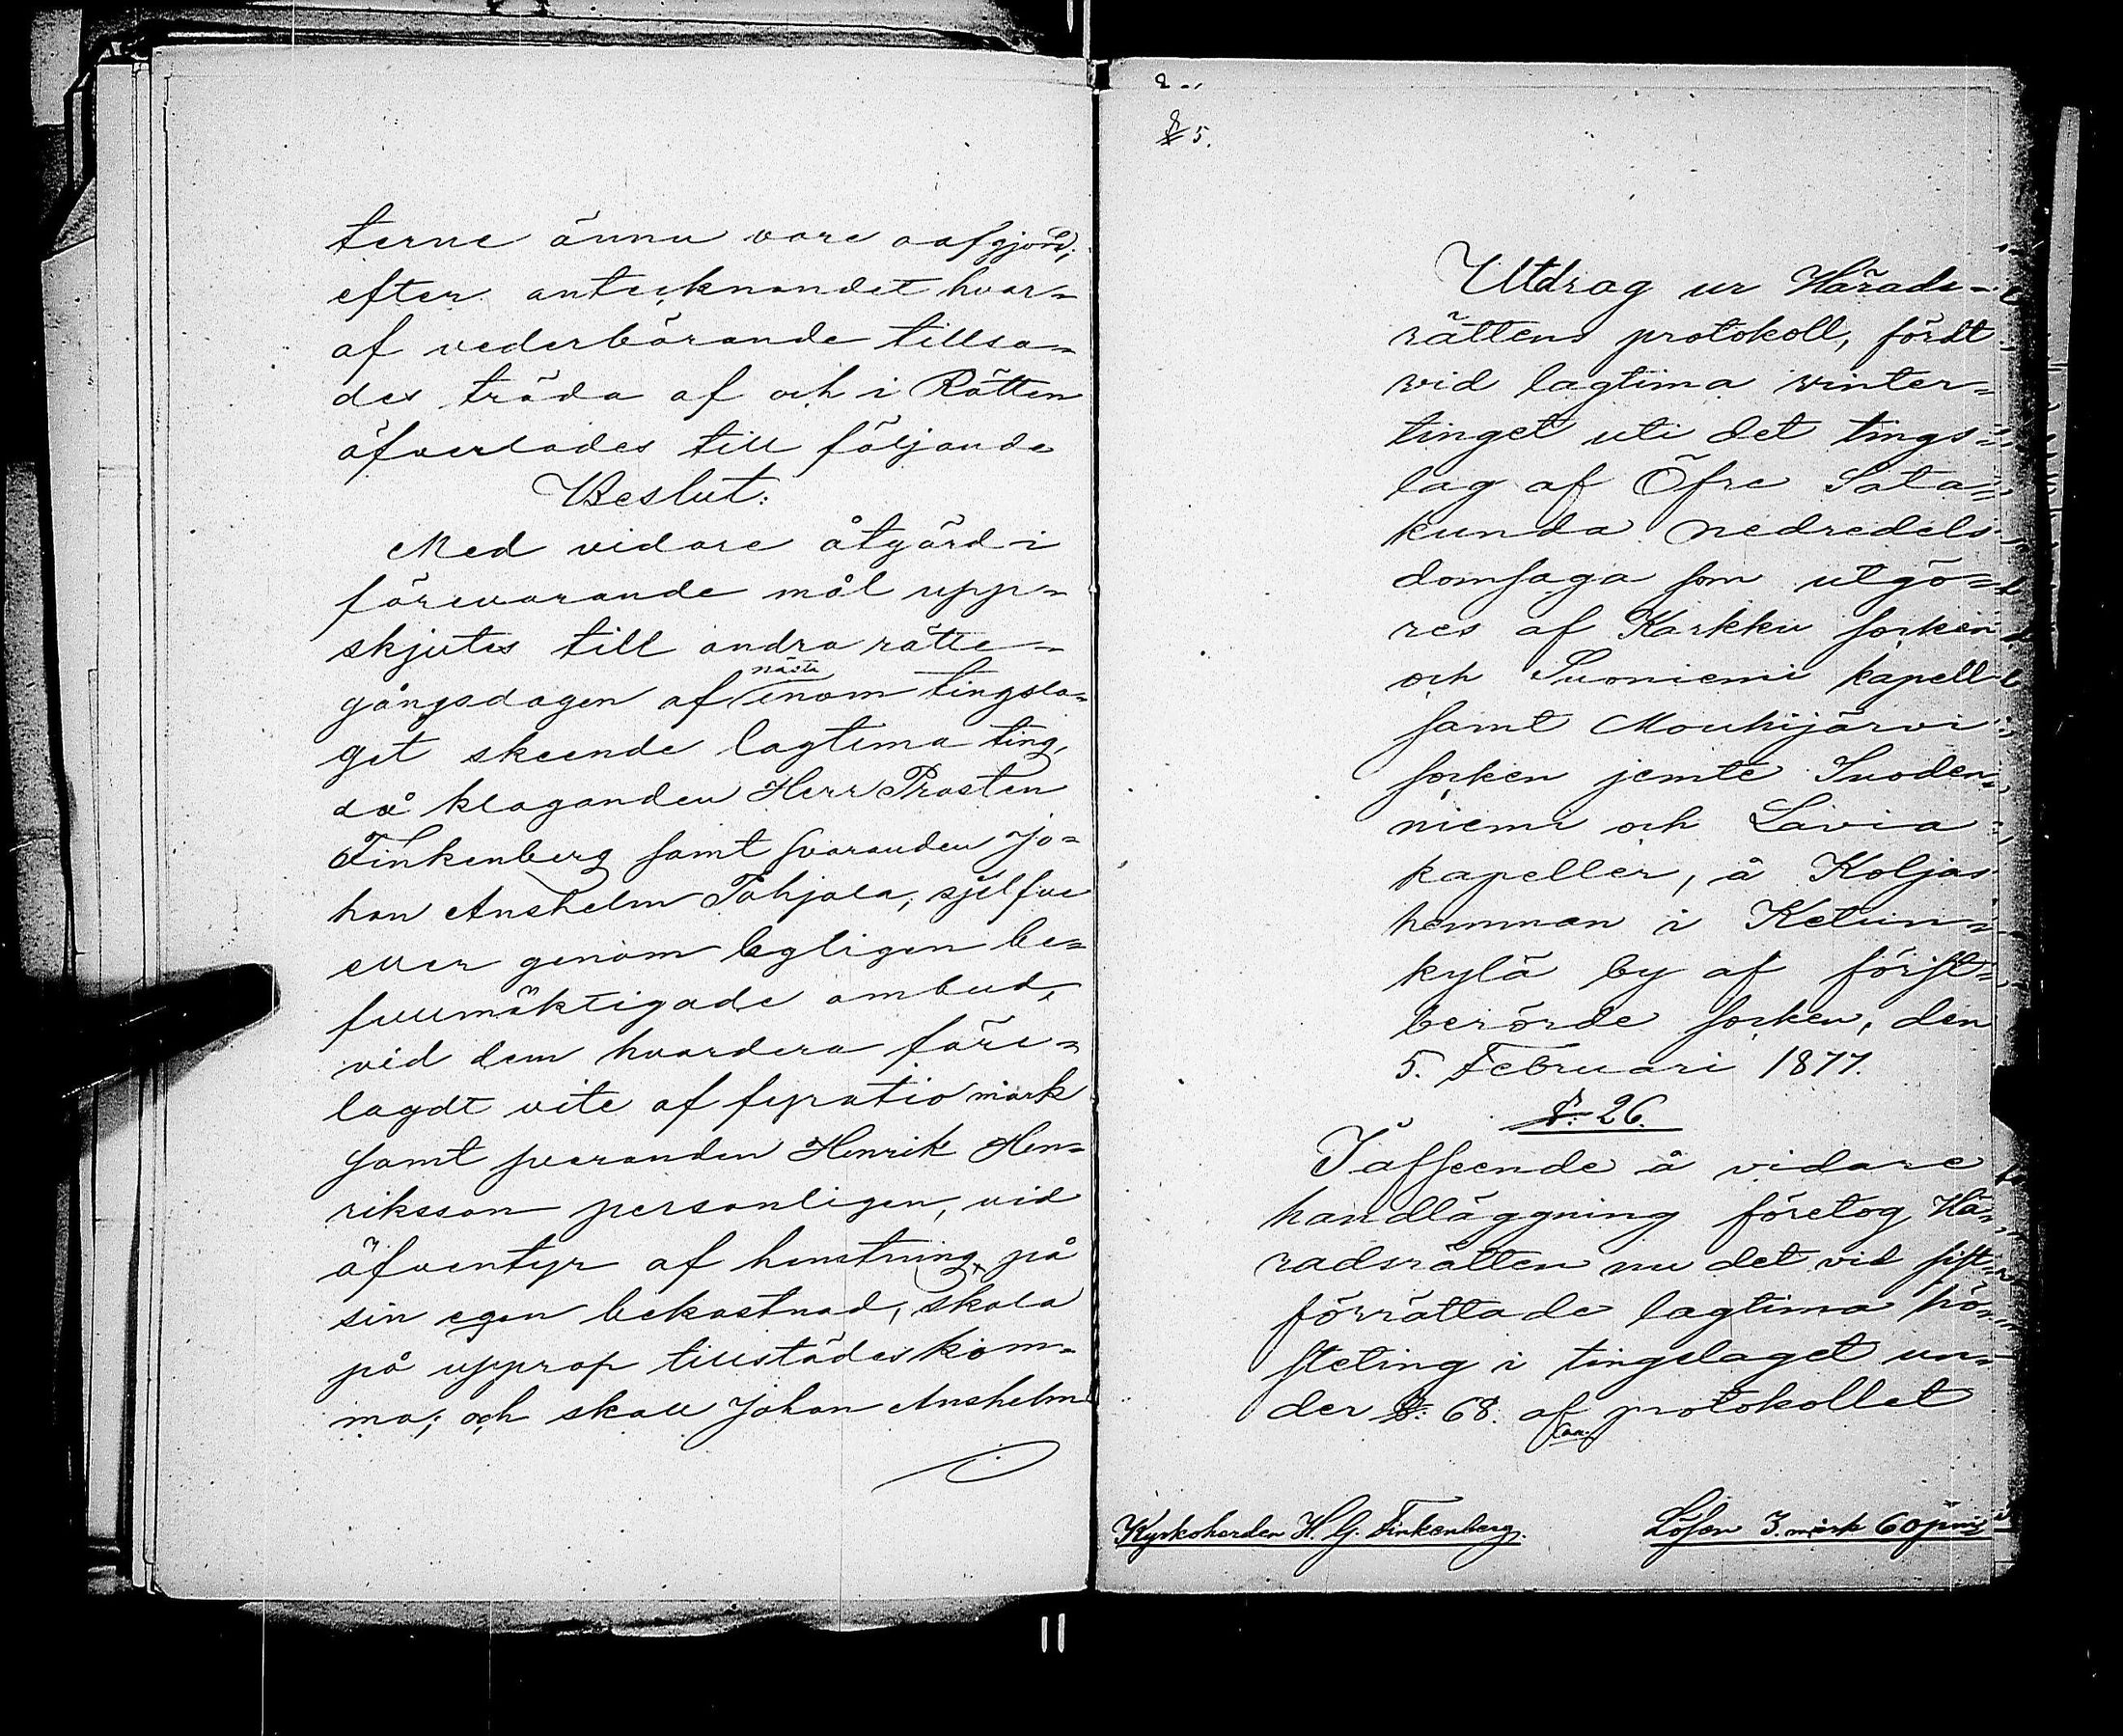 terne ännu vore oafgjord;
efter antecknandet hvar-
af vederbörande tillsa-
des träda af och i Rätten
öfverlades till följande
Beslut:
Med vidare åtgärd i
förevarande mål upp-
skjutes till andra rätte-
gångsdagen af näste inom tingsla-
get skeende lagtima ting,
då klaganden Herr Prosten
Finkenberg samt svaranden Jo-
han Anshelm Pohjala, sjelfve
eller genom lagligen be-
fullmäktigade ombud,
vid dem hvardera före-
lagdt vite af fyratio mark
samt svaranden Henrik Hen-
riksson personligen, vid
äfventyr af hemtning på
sin egen bekostnad, skola
på upprop tillstädes kom-
ma; och skall Johan Anshelm
2.
§ 5.
Utdrag ur Härads-
rättens protokoll, fördt
vid lagtima vinter-
tinget uti det tings-
lag af Öfre Sata-
kunda nedredels
domsaga som utgö-
res af Karkku socken
och Suoniemi kapell
samt Mouhijärvi
socken jemte Suoden-
niemi och Lavia
kapeller, å Koljas
hemman i Ketun-
kylä by af först-
berörde socken, den
5. Februari 1877.
§. 26.
I afseende å vidare
handläggning företog Hä-
radsrätten nu det vid sist-
förrättade lagtima hö-
steting i tingslaget un-
der §. 68. af protokollet
Kyrkoherden H. G. Finkenberg.
Lösen 3. mark 60 pni